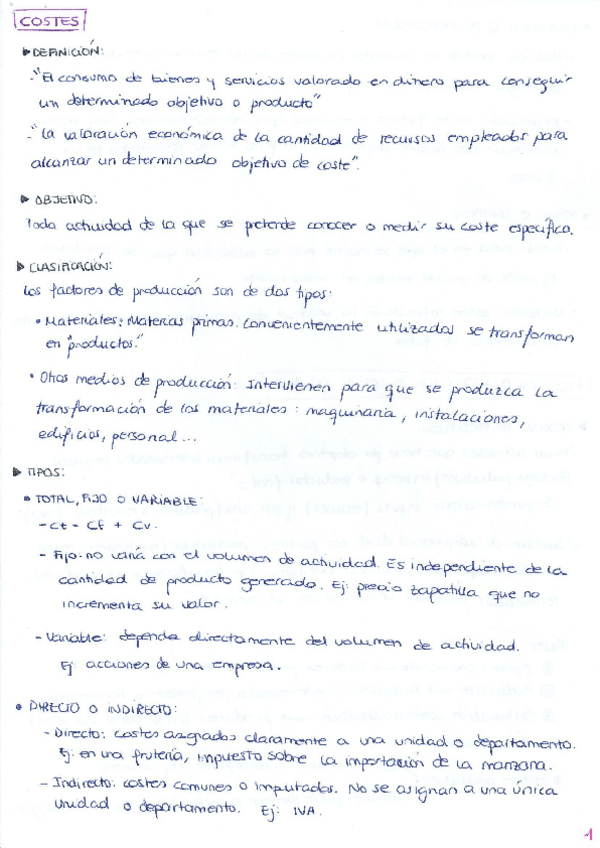 COSTES
▶ DEFINICIÓN:
-"El consumo de bienes y servicios valorado en dinero para conseguir
un determinado objetivo o producto"
-"La valoración económica de la cantidad de recursos empleados para
alcanzar un determinado objetivo de coste".
▶ OBJETIVO:
Toda actividad de la que se pretende conocer o medir su coste específico.
▶ CLASIFICACIÓN:
Los factores de producción son de dos tipos:
• Materiales: Materias primas. Convenientemente utilizados se transforman
en "productos."
• Otros medios de producción: Intervienen para que se produzca la
transformación de los materiales: maquinaria, instalaciones,
edificios, personal...
▶ TIPOS:
• TOTAL, FIJO O VARIABLE:
- Ct = Cf + Cv.
- Fijo: no varía con el volumen de actividad. Es independiente de la
cantidad de producto generado. Ej: precio zapatilla que no
incrementa su valor.
- Variable: depende directamente del volumen de actividad.
Ej: acciones de una empresa.
• DIRECTO O INDIRECTO:
- Directo: costes asignados claramente a una unidad o departamento.
Ej: en una frutería, impuesto sobre la importación de la manzana.
- Indirecto: costes comunes o imputados. No se asignan a una única
unidad o departamento. Ej: IVA.
1